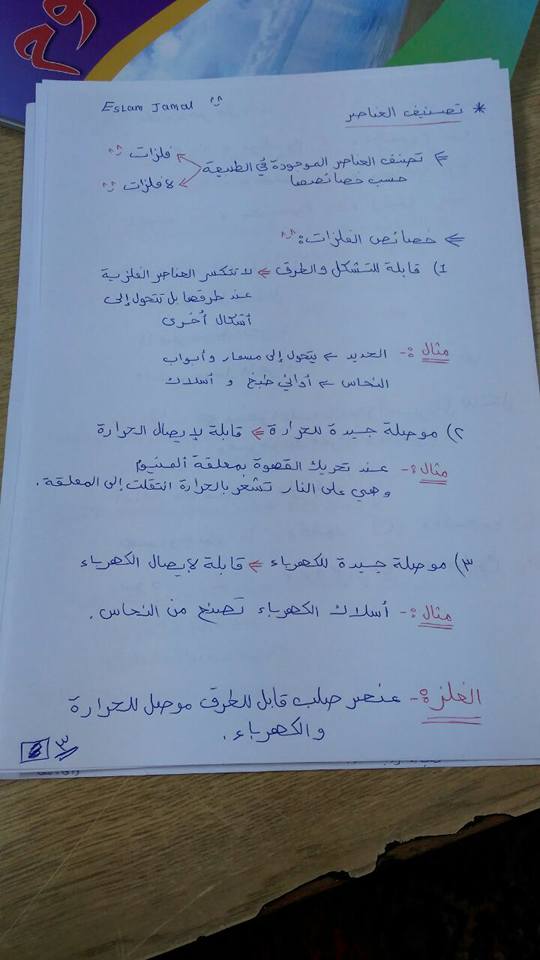 * تصنيف العناصر
Eslam Jamal ^^
⇐ تصنف العناصر الموجودة في الطبيعة
حسب خصائصها
فلزات ^^
لا فلزات ^^
⇐ خصائص الفلزات: ^^
1) قابلة للتشكل والطرق ⇐ لا تتكسر العناصر الفلزية
عند طرقها بل تتحول إلى
أشكال أخرى
مثال :- الحديد ⇐ يتحول إلى مسمار وأبواب
النحاس ⇐ أواني طبخ و أسلاك
٢) موصلة جيدة للحرارة ⇐ قابلة لإيصال الحرارة
مثال :- عند تحريك القهوة بمعلقة ألمنيوم
وهي على النار تشعر بالحرارة انتقلت إلى المعلقة.
٣) موصلة جيدة للكهرباء ⇐ قابلة لإيصال الكهرباء
مثال :- أسلاك الكهرباء تصنع من النحاس.
الفلزة :- عنصر صلب قابل للطرق موصل للحرارة
والكهرباء.
٣